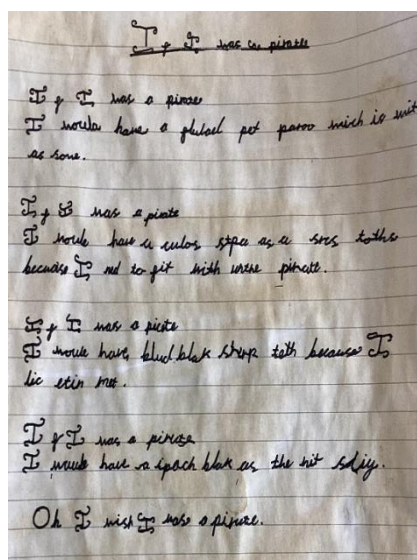 If I was a pirate
If I was a pirate
I would have a pet paroo wich is wit
as sone.
If I was a pirate
I would have a stpea as a srcs toths
because I ned to fit with pirate.
If I was a picate
I would have, blud blak shrp teth because I
lic etin met.
If I was a pirate
I would have a ipach blak as the nit sdiy.
Oh I wish I was a pirate.